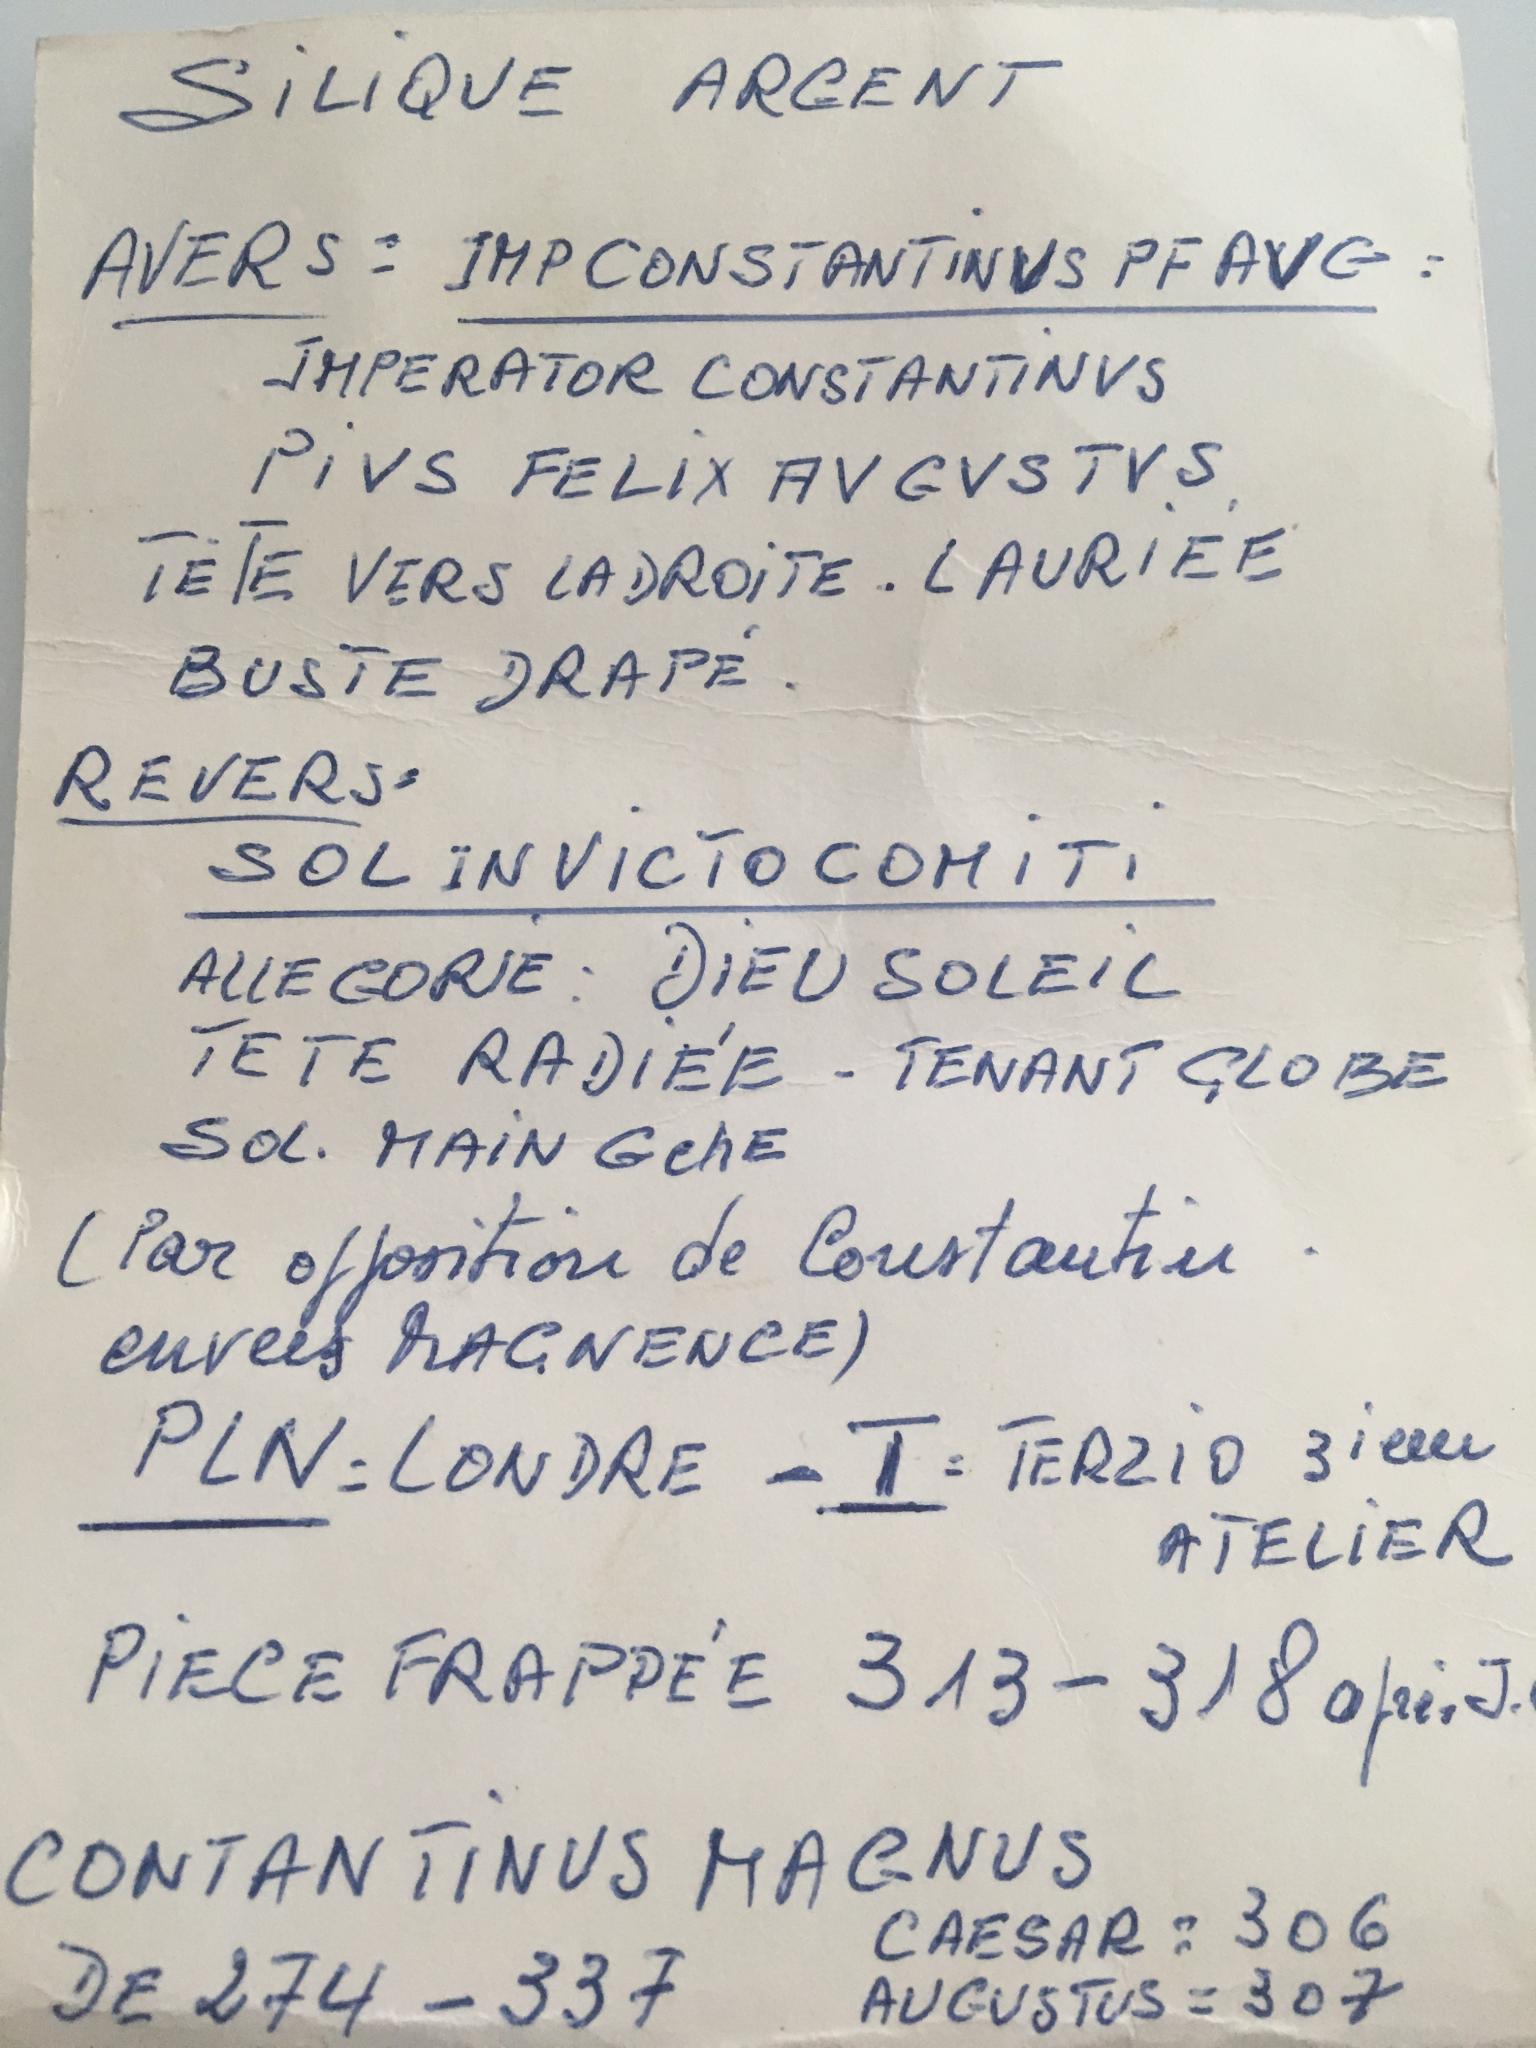 SILIQUE ARGENT
AVERS = IMP CONSTANTINVS PF AVG =
IMPERATOR CONSTANTINVS
PIVS FELIX AVGVSTVS
TÊTE VERS LA DROITE. LAURIÉE
BUSTE DRAPÉ.
REVERS=
SOL INVICTO COMITI
ALLEGORIE: DIEU SOLEIL
TETE RADIÉE - TENANT GLOBE
SOL. MAIN GCHE
(Par opposition de Constantin
envers MAGNENCE)
PLN = LONDRE - T = TERZIO 3iem
ATELIER
PIECE FRAPPÉE 313-318 apr. J.
CONTANTINUS MAGNUS
CAESAR = 306
DE 274 - 337 AUGUSTUS = 307